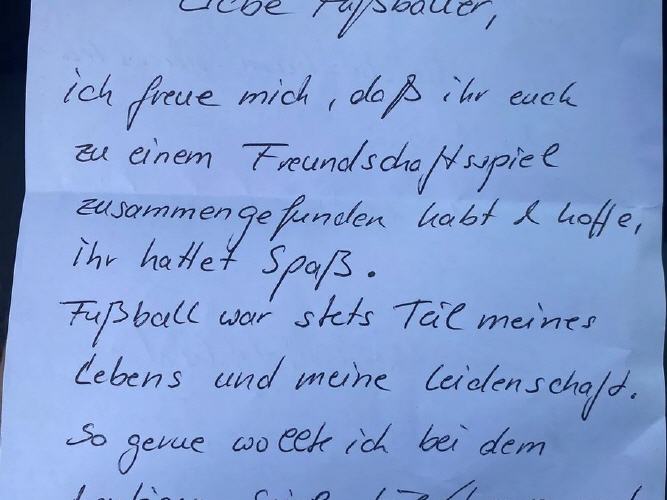 Liebe Fußballer,
ich freue mich, daß ihr euch
zu einem Freundschaftsspiel
zusammengefunden habt & hoffe,
ihr hattet Spaß.
Fußball war stets Teil meines
Lebens und meine Leidenschaft.
So gerne wollte ich bei dem